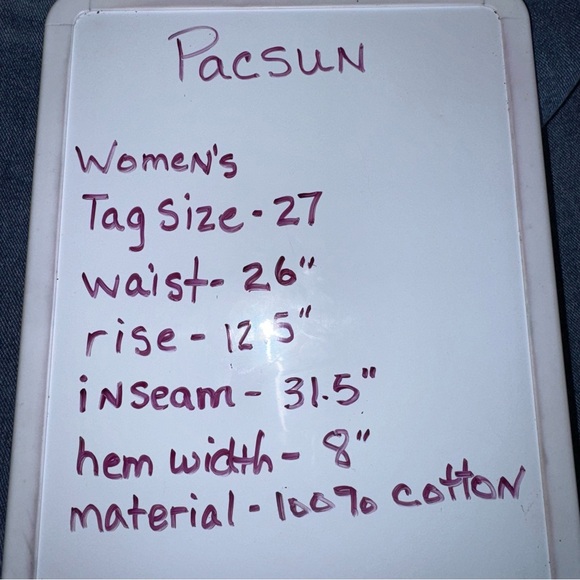 PacSun
Women's
Tag Size - 27
waist - 26"
rise - 12.5"
inseam - 31.5"
hem width - 8"
material - 100% cotton